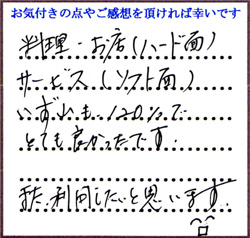 お気付きの点やご感想を頂ければ幸いです
料理・お店(ハード面)
サービス(ソフト面)
いずれも、120%で
とても良かったです。
また利用したいと思います。